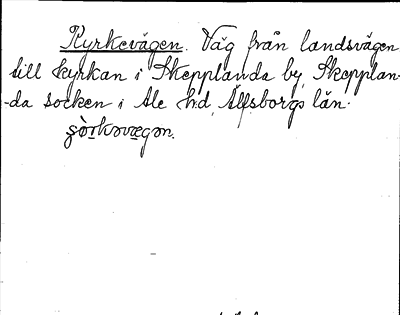 Kyrkevägen. Väg från landsvägen
till kyrkan i Skepplanda by, Skepplan-
-da socken i Ale hd, Älfsborgs län.